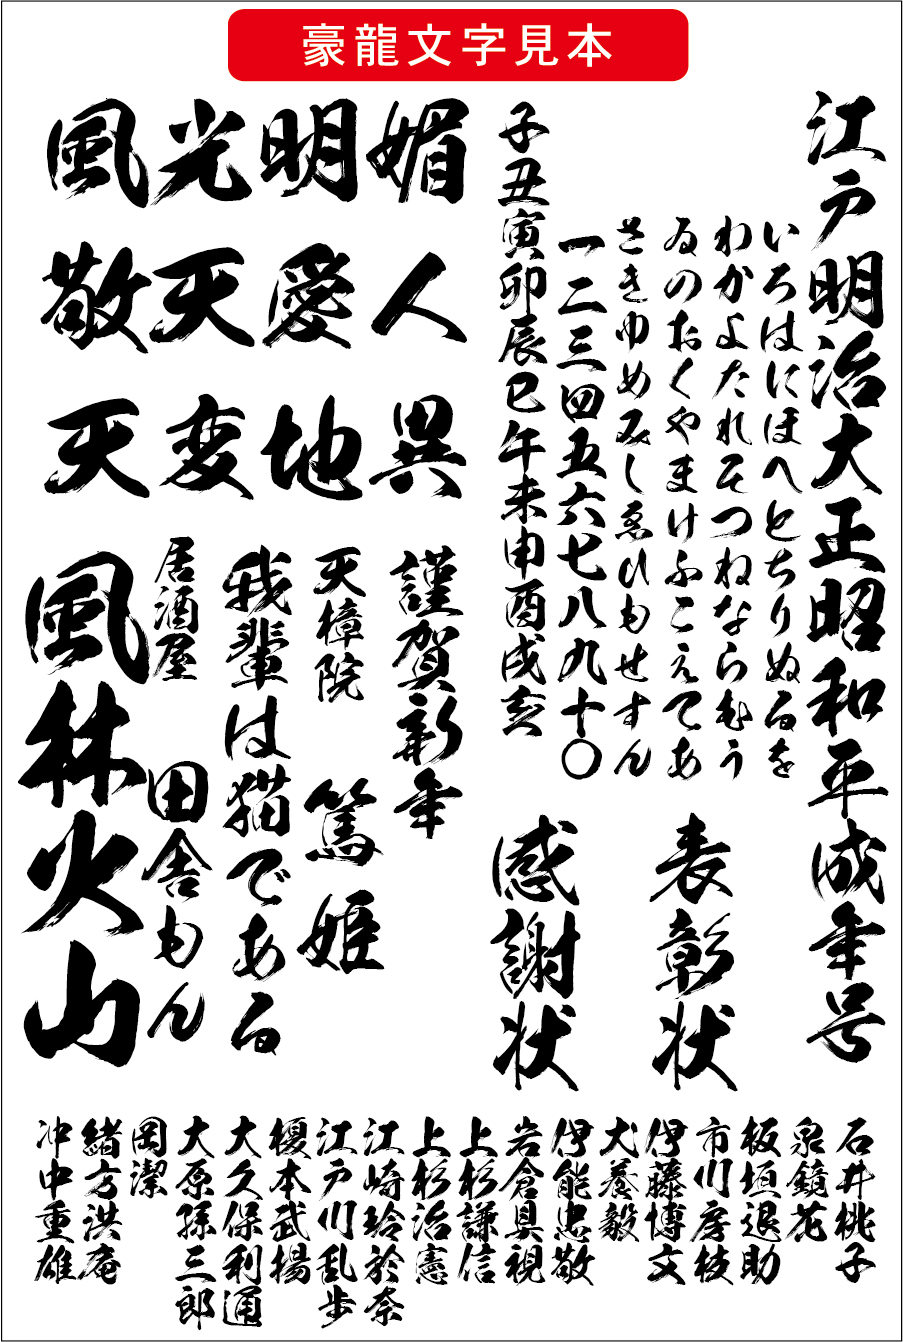 豪龍文字見本
江戸明治大正昭和平成年号
いろはにほへとちりぬるを
わかよたれそつねならむう
ゐのおくやまけふこえてあ
さきゆめみしゑひもせすん
一二三四五六七八九十〇
子丑寅卯辰巳午未申酉戌亥
表彰状
感謝状
媚人異
明愛地
光天変
風敬天
謹賀新年
天樟院 篤姫
我輩は猫である
居酒屋 田舎もん
風林火山
石井桃子
泉鏡花
板垣退助
市川房枝
伊藤博文
犬養毅
伊能忠敬
岩倉具視
上杉謙信
上杉治憲
江崎玲於奈
江戸川乱歩
榎本武揚
大久保利通
大原孫三郎
岡潔
緒方洪庵
沖中重雄